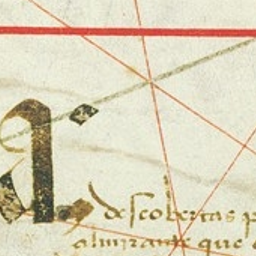 a
descobertas p
almirante que